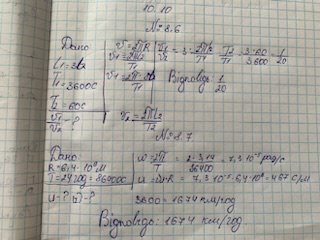 10.10
№ 8.6
Дано
l₁ = 3l₂
T₁ = 3600с
T₂ = 60с
v₁/v₂ - ?
v = 2πR/T
v₁ = 2πl₁/T₁
v₂ = 2πl₂/T₂
T₂/T₁ = 3·60/3600 = 1/20
Відповідь: 1/20
№ 8.7.
Дано
R = 6,4 · 10⁶ м
T = 24 год = 86400с
ω = 2π/T = 2·3,14/86400 = 7,3·10⁻⁵ рад/с
u = ωR = 7,3·10⁻⁵·6,4·10⁶ = 467 с/м
3600 = 1674 км/год
Відповідь: 1674 км/год